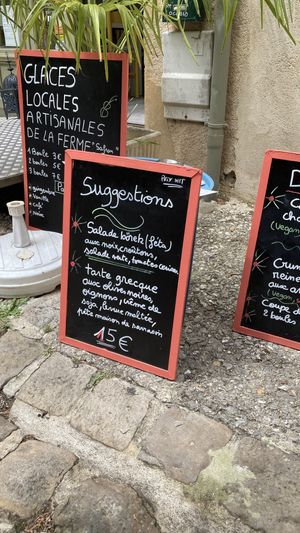 GLACES
LOCALES
ARTISANALES
DE LA FERME "Safran"
1 Boule 3€
2 boules 5€
3 boules 7€
+ gingembre
+ Vanille
+ café
PRIX NET
Suggestions
Salade börek (féta)
aux noix, croûtons,
salade verte, tomates cerises
Tarte grecque
aux olives noires,
oignons, crème de
soja, levure maltée,
pâte maison de sarrasin
15€
D
Cru
reine
aux a
(vegan
Coupe d
2 boules
ch
(Vegan